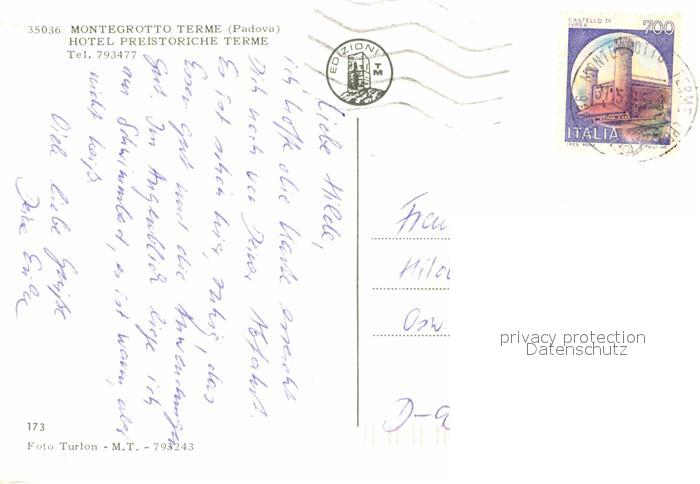 35036 MONTEGROTTO TERME (Padova)
HOTEL PREISTORICHE TERME
Tel. 793477
EDIZIONI
TM
CASTELLO DI
IVREA
700
ITALIA
MONTEGROTTO TERME
Liebe Hilde,
ich hoffe die Karte erreicht
Dich noch vor Deiner Abfahrt.
Es ist schön hier, ruhig, das
Essen gut und die Anwendungen
gut. Im Augenblick liege ich
am Schwimmbad, es ist warm, aber
nicht heiß.
Viele liebe Grüße
Deine
Frau
D-
privacy protection
Datenschutz
173
Foto Turlon - M.T. - 793243